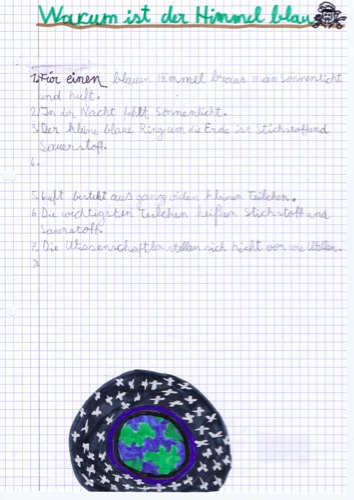 Warum ist der Himmel blau
1. Für einen blauen Himmel braus man sonnenlicht
und luft.
2. In der Nacht fehlt Sonnenlicht.
3. Der kleine blaue Ring um die Erde ist Stichstoff und
Sauerstoff.
4.
5. Luft besteht aus ganz vielen kleinen Teilchen.
6. Die wichtigsten Teilchen heißen Stichstoff und
Sauerstoff.
7. Die Wissenschaftler stellen sich licht vor wie Wellen.